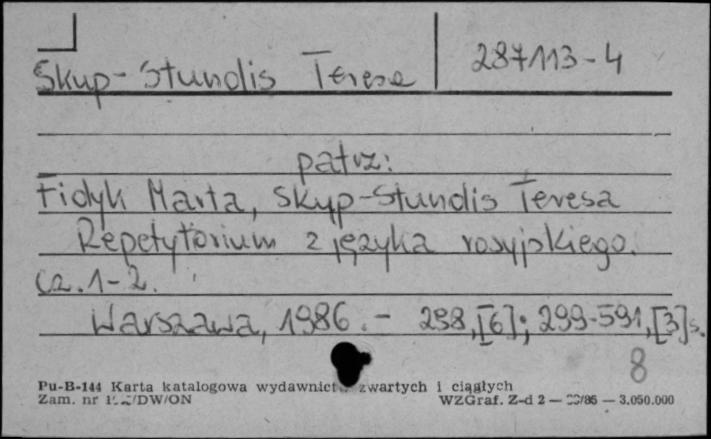 Skup-Stundis Teresa 287113-4
patrz:
Fidyk Marta, Skup-Stundis Teresa
Repetytorium z języka rosyjskiego.
Cz. 1-2.
Warszawa, 1986. - 298, [6]; 299-591, [3] s.
8
Pu-B-144 Karta katalogowa wydawnict zwartych i ciągłych
Zam. nr /DW/ON WZGraf. Z-d 2 — /86 — 3.050.000